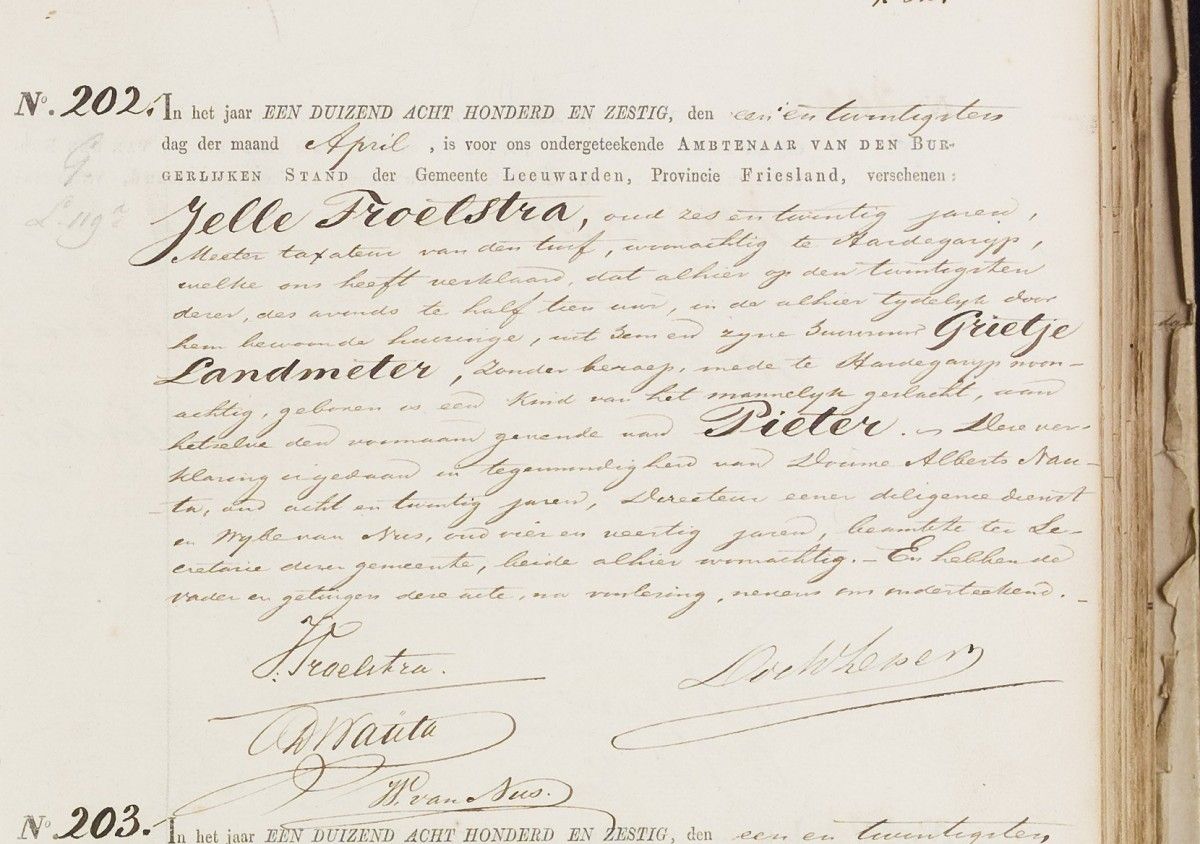 No. 202. In het jaar EEN DUIZEND ACHT HONDERD EN ZESTIG, den een en twintigsten
dag der maand April, is voor ons ondergeteekende AMBTENAAR VAN DEN BUR-
GERLIJKEN STAND der Gemeente Leeuwarden, Provincie Friesland, verschenen:
Jelle Troelstra, oud zes en twintig jaren,
Meeter taxateur van den turf, woonachtig te Hardegarijp,
welke ons heeft verklaard, dat alhier op den twintigsten
dezer, des avonds te half tien uur, in de alhier tydelyk door
hem bewoonde huizinge, uit hem en zyne huisvrouw Grietje
Landmeter, zonder beroep, mede te Hardegaryp woon-
achtig, geboren is een kind van het mannelyk geslacht, aan
hetzelve den voornaam gevende van Pieter. Deze ver-
klaring is gedaan in tegenwoordigheid van Douwe Alberts Nau-
ta, oud acht en twintig jaren, Directeur eener diligence dienst
en Wybe van Nus, oud vier en veertig jaren, beambte ter Se-
cretarie dezer gemeente, beide alhier woonachtig. – En hebben de
vader en getuigen deze acte, na voorlezing, nevens ons onderteekend. –
J. Troelstra.
D A Nauta
W. van Nus.
No. 203. In het jaar EEN DUIZEND ACHT HONDERD EN ZESTIG, den een en twintigsten